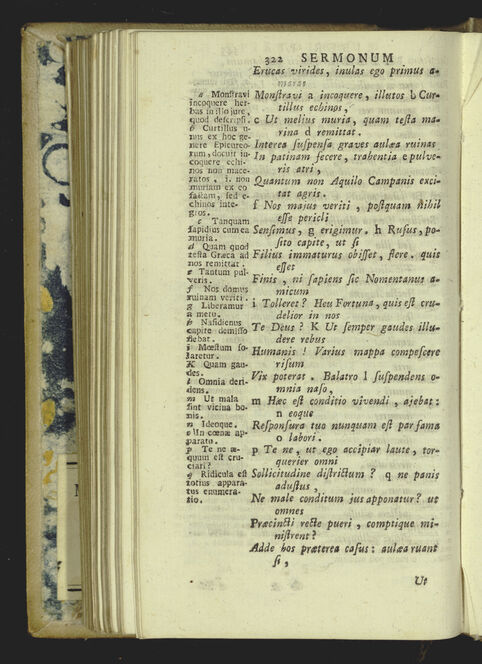 322 SERMONUM
Erucas virides, inulas ego primus a-
maras
Monſtravi a incoquere, illutos b Cur-
tillus echinos,
c Ut melius muria, quam teſta ma-
rina d remittat.
Interea ſuſpenſa graves aulæa ruinas
In patinam fecere, trahentia e pulve-
ris atri,
Quantum non Aquilo Campanis exci-
tat agris.
f Nos majus veriti, poſtquam nihil
eſſe pericli
Senſimus, g erigimur. h Rufus, po-
ſito capite, ut ſi
Filius immaturus obiſſet, flere. quis
eſſet
Finis, ni ſapiens ſic Nomentanus a-
micum
i Tolleret? Heu Fortuna, quis eſt cru-
delior in nos
Te Deus? K Ut ſemper gaudes illu-
dere rebus
Humanis! Varius mappa compeſcere
riſum
Vix poterat. Balatro l ſuſpendens o-
mnia naſo,
m Hæc eſt conditio vivendi, ajebat:
n eoque
Reſponſura tuo nunquam eſt par fama
o labori.
p Te ne, ut ego accipiar laute, tor-
querier omni
Sollicitudine diſtrictum? q ne panis
aduſtus,
Ne male conditum jus apponatur? ut
omnes
Præcincti recte pueri, comptique mi-
niſtrent?
Adde hos præterea caſus: aulæa ruant
ſi,
Ut
a Monſtravi
incoquere her-
bas in illo jure,
quod deſcripſi.
b Curtillus u-
nus ex hoc ge-
nere Epicureo-
rum, docuit in-
coquere echi-
nos non mace-
ratos, i. non
muriam ex eo
factam, ſed e-
chinos inte-
gros.
c Tanquam
ſapidius cum ea
muria.
d Quam quod
teſta Græca ad
nos remittat.
e Tantum pul-
veris.
f Nos domus
ruinam veriti.
g Liberamur
a metu.
h Naſidienus
capite demiſſo
flebat.
i Mœſtum ſo-
laretur.
K Quam gau-
des.
l Omnia deri-
dens.
m Ut mala
ſint vicina bo-
nis.
n Ideoque.
o In cœnæ ap-
paratu.
p Te ne æ-
quum eſt cru-
ciari?
q Ridicula eſt
totius appara-
tus enumera-
tio.